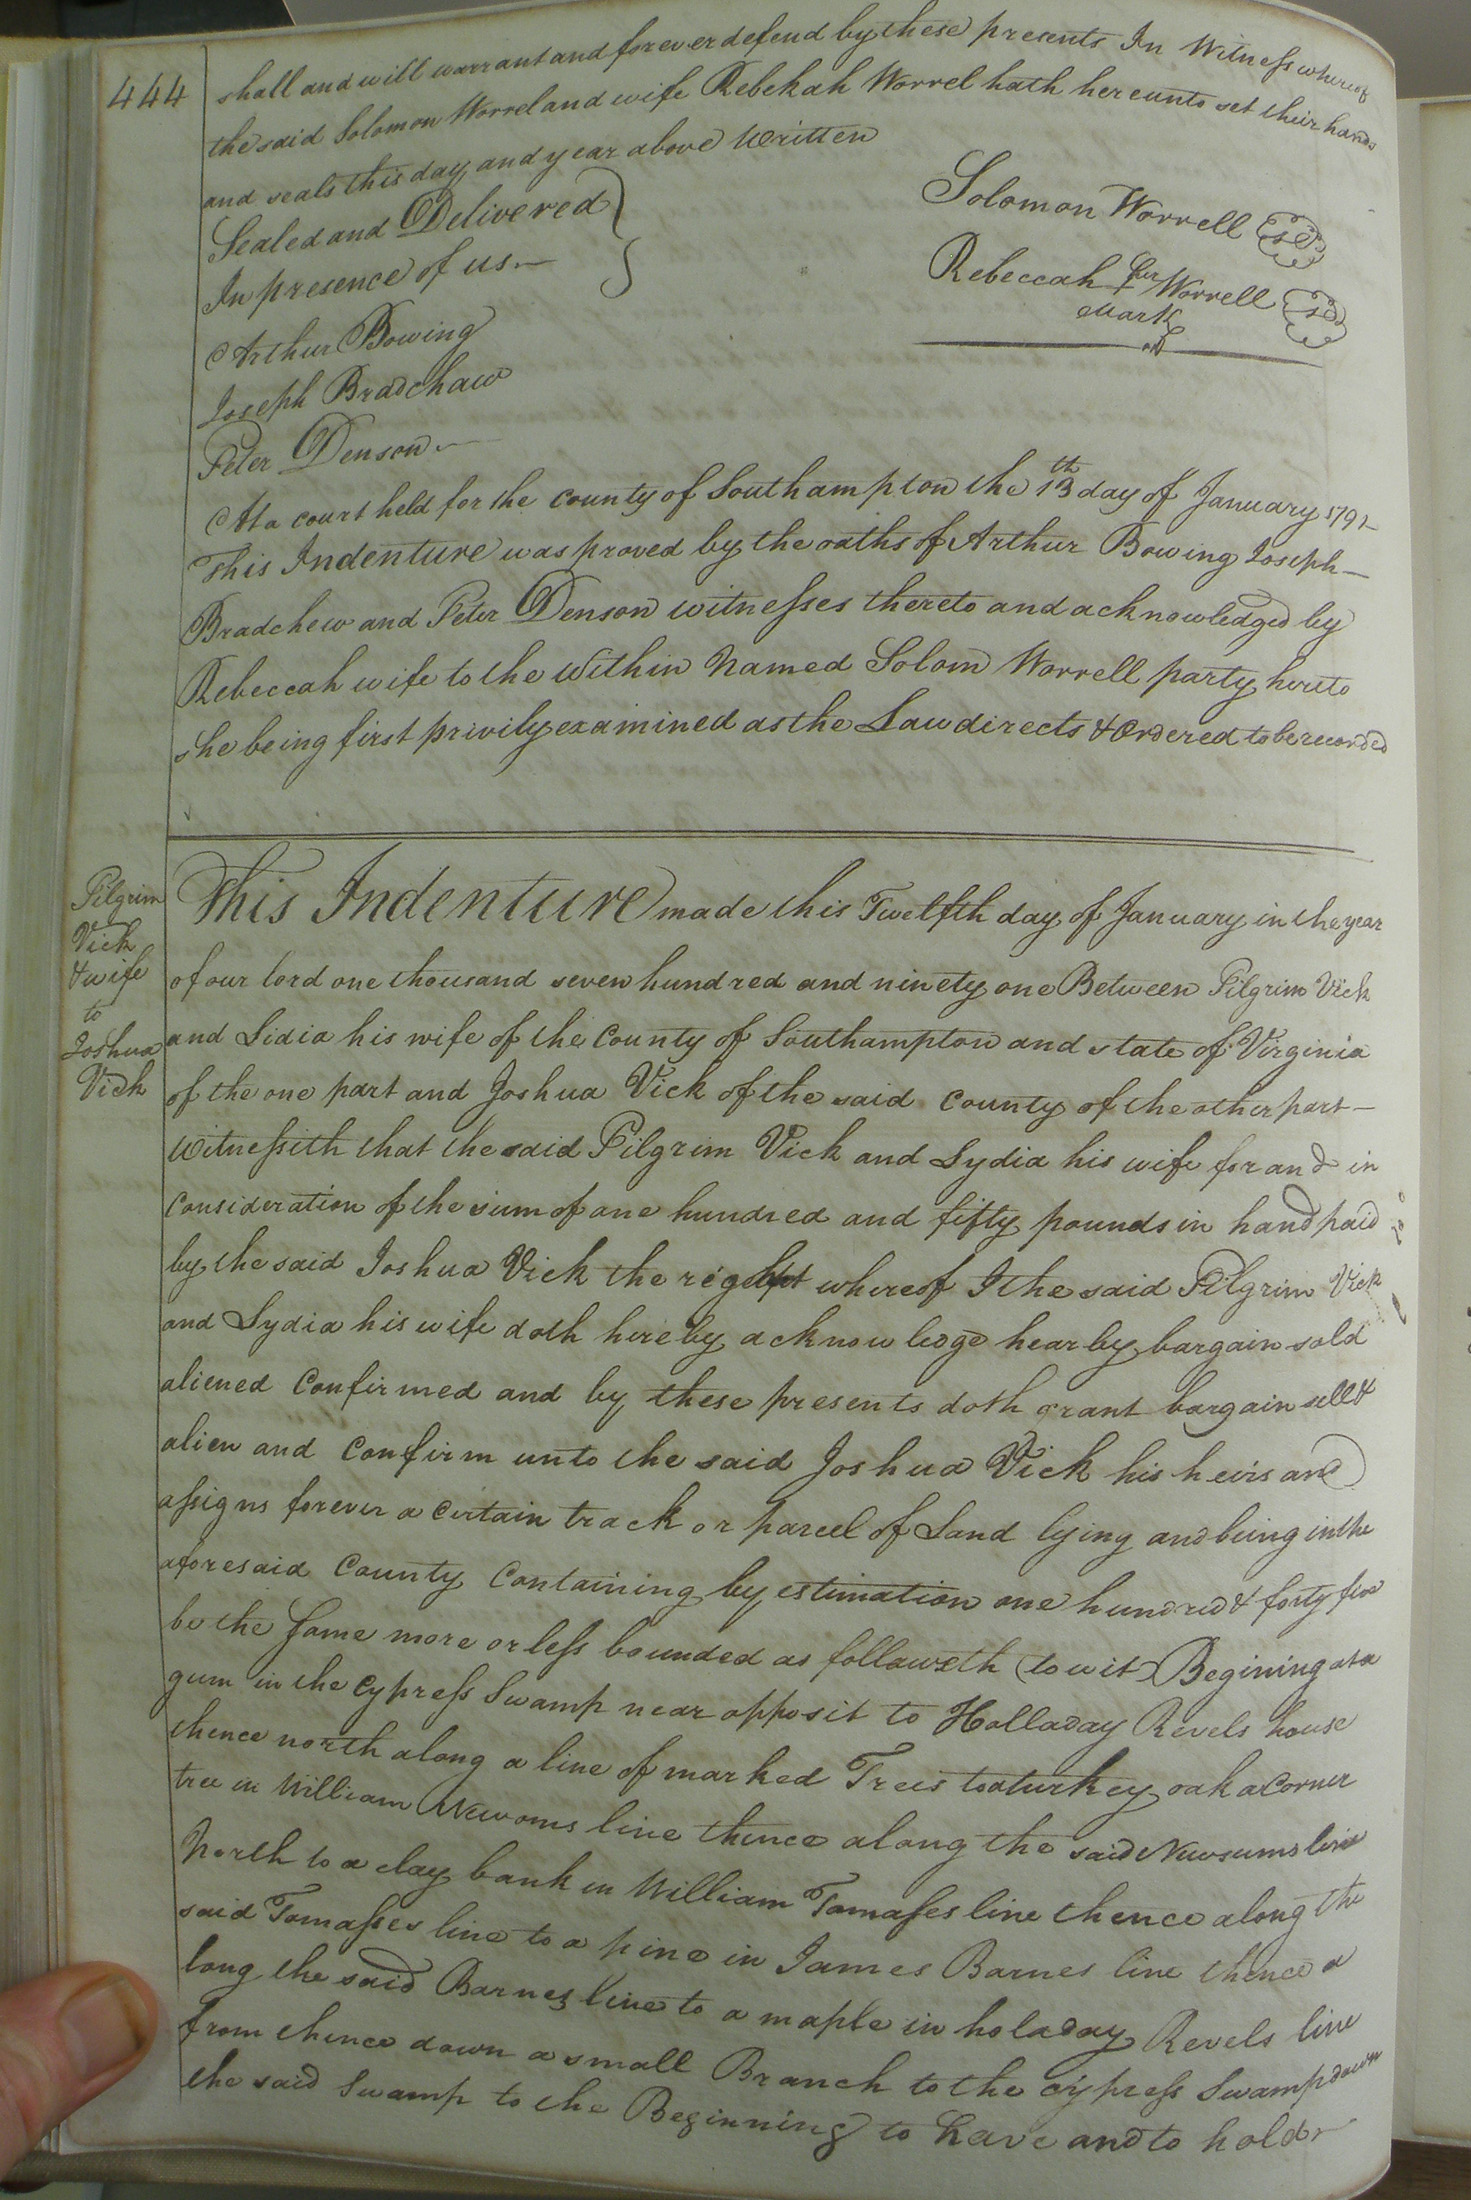 444
shall and will warrant and forever defend by these presents In Witness whereof
the said Solomon Worrel and wife Rebekah Worrel hath hereunto set their hands
and seals this day and year above Written
Sealed and Delivered
In presence of us
Arthur Bowing
Joseph Bradchaw
Peter Denson
Solomon Worrell
Rebeccah her Worrell
Mark
At a court held for the county of Southampton the 13th day of January 1791
This Indenture was proved by the oaths of Arthur Bowing Joseph
Bradchew and Peter Denson witnesses thereto and acknowledged by
Rebeccah wife to the Within Named Solom Worrell party hereto
she being first privily examined as the Law directs & Ordered to be recorded
Pilgrim
Vick
& wife
to
Joshua
Vick
This Indenture made this Twelfth day of January in the year
of our lord one thousand seven hundred and ninety one Between Pilgrim Vick
and Lidia his wife of the County of Southampton and state of Virginia
of the one part and Joshua Vick of the said County of the other part
Witnessith that the said Pilgrim Vick and Lydia his wife for and in
Consideration of the sum of one hundred and fifty pounds in hand paid
by the said Joshua Vick the whereof I the said Pilgrim Vick
and Lydia his wife doth hereby acknowledge hearby bargain sold
aliened Confirmed and by these presents doth grant bargain sell &
alien and Confirm unto the said Joshua Vick his heirs and
assigns forever a Certain track or parcel of Land lying and being in the
aforesaid County Containing by estimation one hundred & forty five
be the same more or less bounded as followeth (to wit) Begining at a
gum in the Cypress Swamp near opposit to Holladay Revels house
thence north along a line of marked Trees to a turkey oak a Corner
tree in William Newsoms line thence along the said Newsums line
North to a clay bank in William Tomasses line thence along the
said Tomasses line to a pine in James Barnes line thence a
long the said Barnes line to a maple in holaday Revels line
from thence down a small Branch to the Cypress Swamp down
the said Swamp to the Beginning to have and to hold